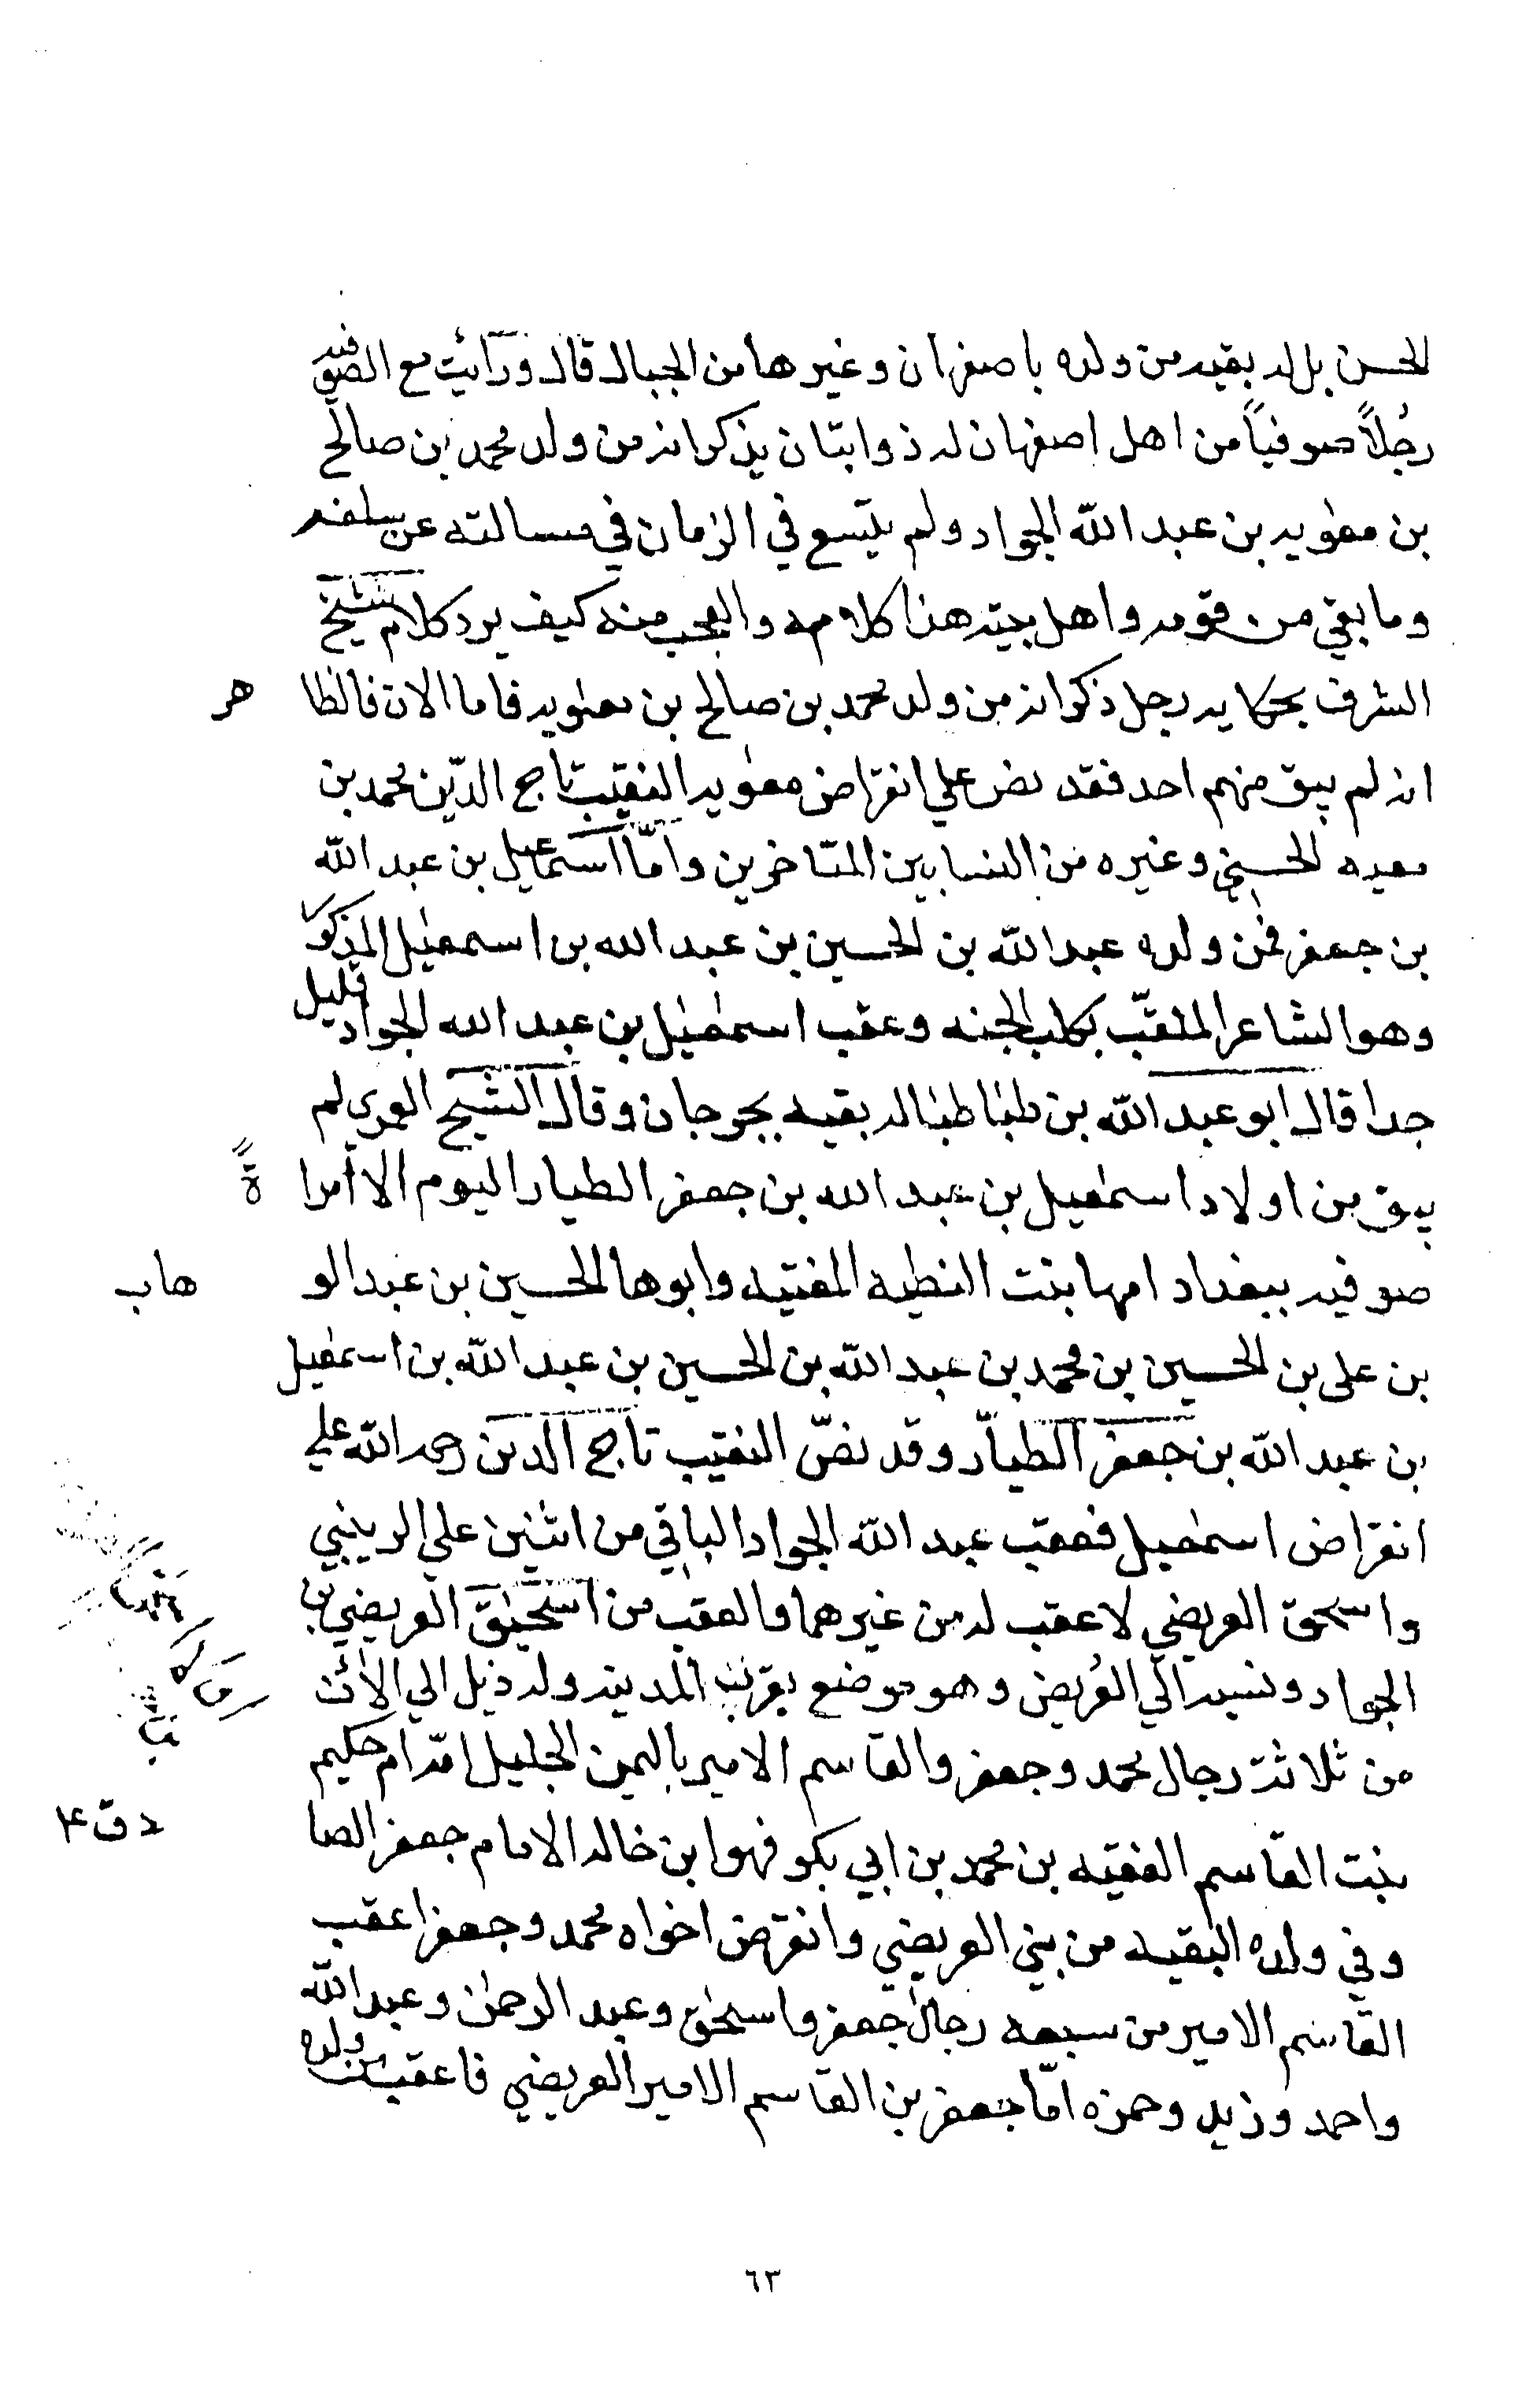 الحسن بل له بقيه من ولده باصفهان وغيرها من الجبال قال ورأيت مع الصوفيه
رجُلاً صوفياً من اهل اصفهان له ذوابتان يذكر انه من ولد محمد بن صالح
بن معويه بن عبد الله الجواد ولم يتسع في الزمان في مسالته عن سلفه
وما بقي من قومه واهل بيته هذا كلامه والعجب منه كيف يرد كلام شيخ
الشرف بحكايه رجل ذكر انه من ولد محمد بن صالح بن معويه فاما الان فالظاهر
انه لم يبق منهم احد فقد نص علي انقراض معويه النقيب تاج الدّين محمد بن
معيه الحسني وغيره من النسابين المتاخرين وامّا اسماعيل بن عبد الله
بن جعفر فمن ولده عبد الله بن الحسين بن عبد الله بن اسمعيل المذكور
وهو الشاعر الملقّب بكلب الجنه وعقب اسمعيل بن عبد الله الجواد قليل
جدا قال ابو عبد الله بن طباطبا له بقيه بجرجان وقال الشيخ العمري لم
يبق من اولاد اسمعيل بن عبد الله بن جعفر الطيار اليوم الا امراةً
صوفيه ببغداد امها بنت النطيه المغنيه وابوها الحسين بن عبد الوهاب
بن علي بن الحسين بن محمد بن عبد الله بن الحسين بن عبد الله بن اسمعيل
بن عبد الله بن جعفر الطيّار وقد نصّ النقيب تاج الدين رحمه الله علي
انقراض اسمعيل فعقب عبد الله الجواد الباقي من اثنين علي الزينبي
واسحق العريضي لا عقب له من غيرهما فالعقب من اسحق العريضي بن
الجواد ونسبه الي العُريض وهو موضع بقرب المدينه وله ذيل الي الان
من ثلاثة رجال محمد وجعفر والقاسم الامير باليمن الجليل امّه ام حكيم
بنت القاسم الفقيه بن محمد بن ابي بكر فهو ابن خاله الامام جعفر الصادق ع
وفي ولده البقيه من بني العريضي وانقرض اخواه محمد وجعفر اعقب
القاسم الامير من سبعه رجال جعفر واسحق وعبد الرحمن وعبد الله
واحمد وزيد وحمزه امّا جعفر بن القاسم الامير العريضي فاعقب من ولده
٦٣